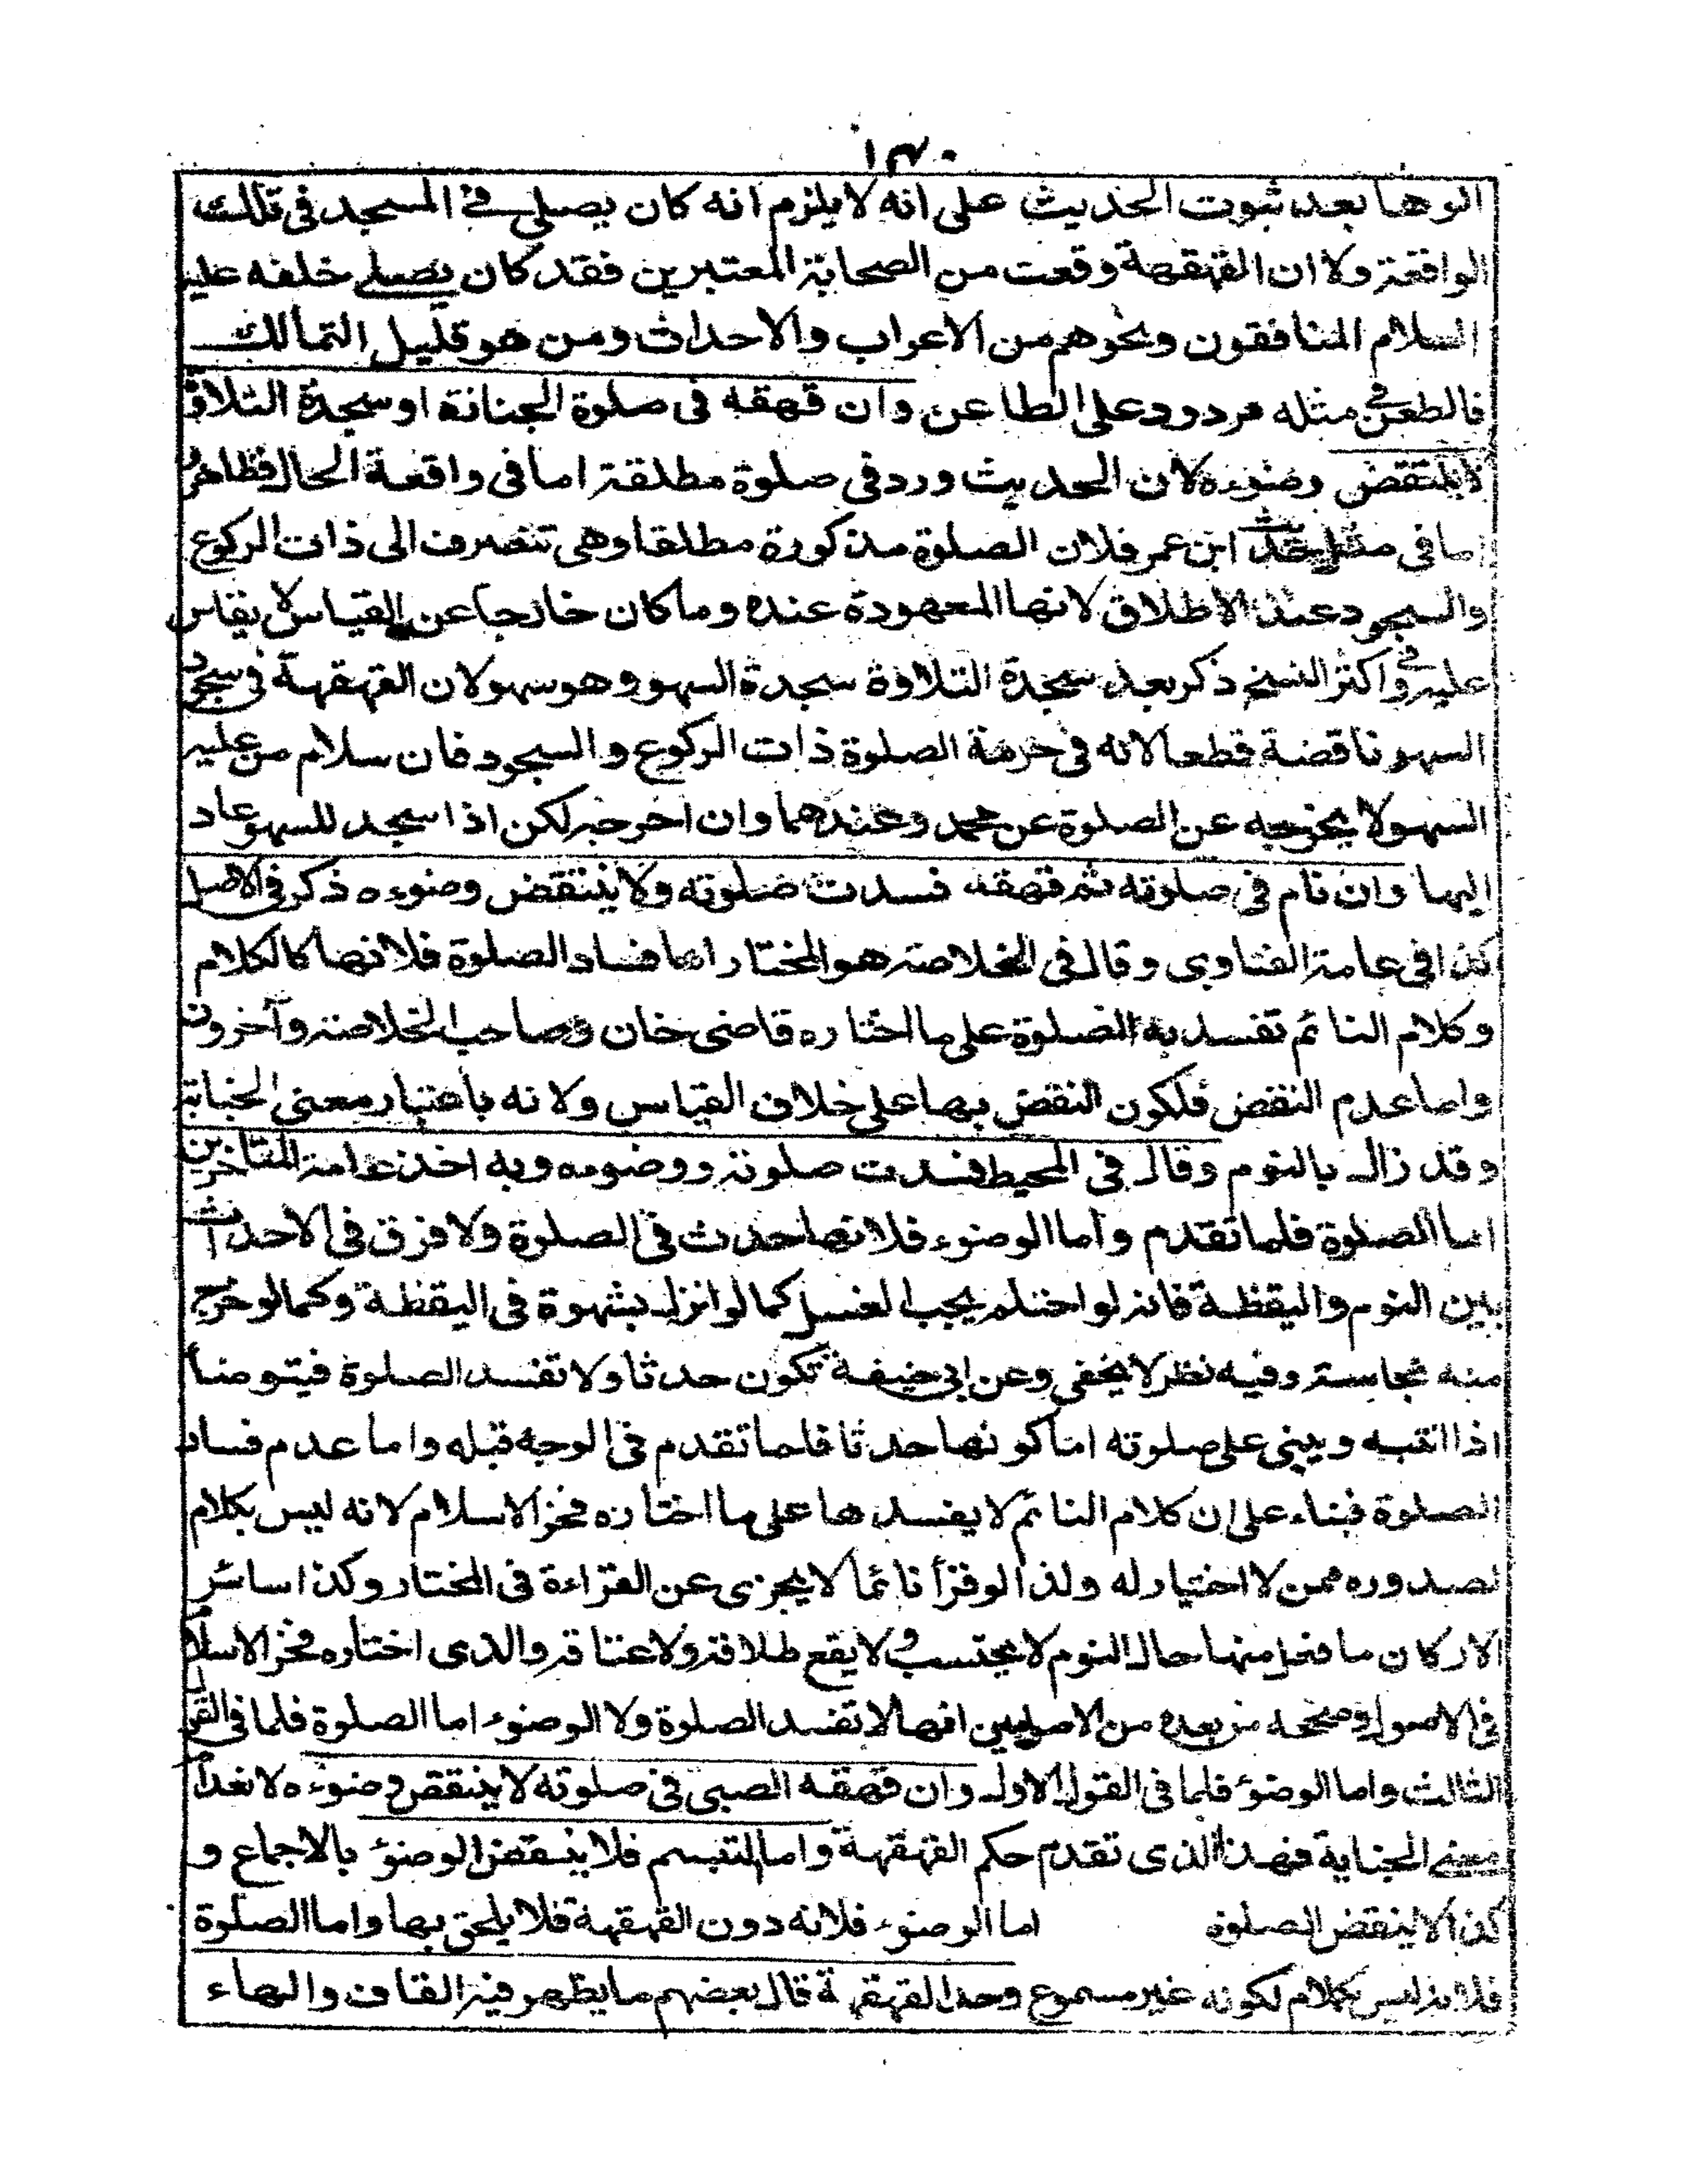 ١٣٠
الوها بعد ثبوت الحديث على انه لا يلزم انه كان يصلى فى المسجد فى تلك
الواقعة ولا ان القهقهة وقعت من الصحابة المعتبرين فقد كان يصلى خلفه عليه
السلام المنافقون ونحوهم من الاعراب والاحداث ومن هو قليل التمالك
فالطعن فى مثله مردود على الطاعن وان قهقه فى صلوة الجنازة او سجدة التلاوة
لا ينتقض وضوءه لان الحديث ورد فى صلوة مطلقة اما فى واقعة الحال فظاهر
اما فى مثل حديث ابن عمر فلان الصلوة مذكورة مطلقا وهى تنصرف الى ذات الركوع
والسجود عند الاطلاق لانها المعهودة عنده وما كان خارجا عن القياس لا يقاس
عليه وفى اكثر النسخ ذكر بعد سجدة التلاوة سجدة السهو وهو سهو لان القهقهة فى سجود
السهو ناقضة قطعا لانه فى حرمة الصلوة ذات الركوع و السجود فان سلام من عليه
السهو لا يخرجه عن الصلوة عن محمد وعندهما وان اخرجه لكن اذا سجد للسهو عاد
اليها وان نام فى صلوته ثم قهقه فسدت صلوته ولا ينتقض وضوءه ذكر فى الاصل
كذا فى عامة الفتاوى وقال فى الخلاصة هو المختار اما فساد الصلوة فلانها كالكلام
وكلام النائم تفسد به الصلوة على ما اختاره قاضى خان وصاحب الخلاصة وآخرون
واما عدم النقض فلكون النقض بها على خلاف القياس ولانه باعتبار معنى الجناية
وقد زال بالنوم وقال فى المحيط فسدت صلوته ووضوءه وبه اخذ عامة المتاخرين
اما الصلوة فلما تقدم واما الوضوء فلانها حدث فى الصلوة ولا فرق فى الاحداث
بين النوم واليقظة فانه لو احتلم يجب الغسل كما لو انزل بشهوة فى اليقظة وكما لو خرج
منه نجاسة وفيه نظر لا يخفى وعن ابى حنيفة تكون حدثا ولا تفسد الصلوة فيتوضأ
اذا انتبه ويبنى على صلوته اما كونها حدثا فلما تقدم فى الوجه قبله واما عدم فساد
الصلوة فبناء على ان كلام النائم لا يفسدها على ما اختاره فخر الاسلام لانه ليس بكلام
لصدوره ممن لا اختيار له ولذا لو قرأ نائما لا يجزى عن القراءة فى المختار وكذا سائر
الاركان ما فعل منها حال النوم لا يحتسب ولا يقع طلاقه ولا عتاقه والذى اختاره فخر الاسلام
فى الاصول وصححه من بعده من الاصوليين انها لا تفسد الصلوة ولا الوضوء اما الصلوة فلما فى القول
الثالث واما الوضوء فلما فى القول الاول وان قهقه الصبى فى صلوته لا ينتقض وضوءه لانعدام
معنى الجناية فهذا الذى تقدم حكم القهقهة واما التبسم فلا ينتقض الوضوء بالاجماع و
كذا لا ينقض الصلوة اما الوضوء فلانه دون القهقهة فلا يلحق بها واما الصلوة
فلانه ليس بكلام لكونه غير مسموع وحد القهقهة قال بعضهم ما يظهر فيه القاف والهاء